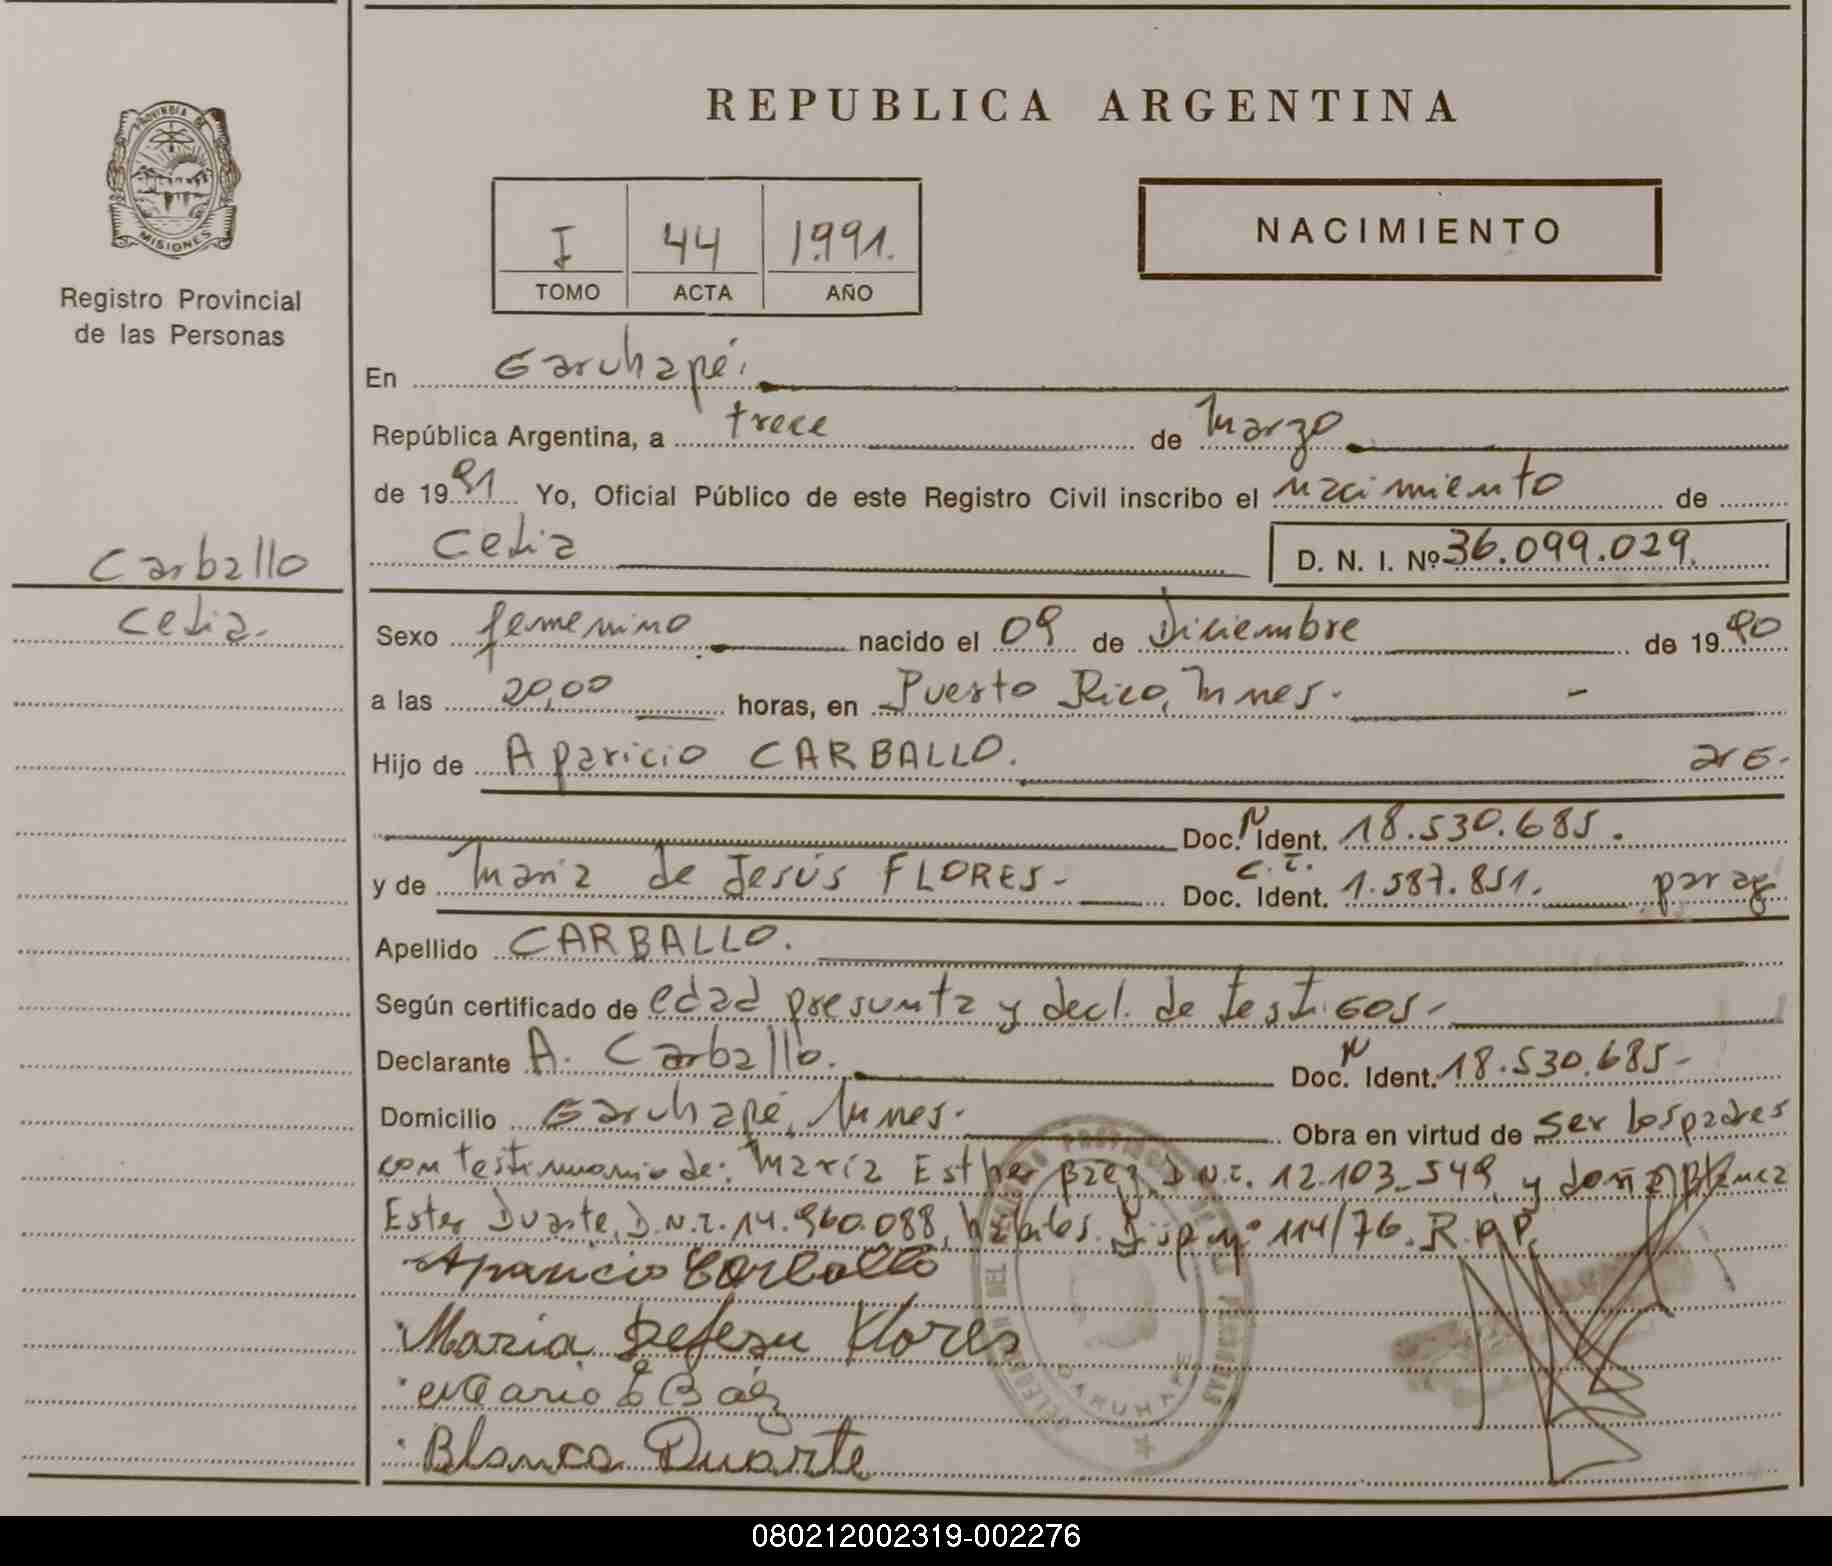 PROVINCIA DE
MISIONES
Registro Provincial
de las Personas
Carballo
Celia.
REPUBLICA ARGENTINA
I 44 1991.
TOMO ACTA AÑO
NACIMIENTO
En Garuhapé.
República Argentina, a trece de Marzo
de 1991 Yo, Oficial Público de este Registro Civil inscribo el nacimiento de
Celia D. N. I. Nº 36.099.029.
Sexo femenino nacido el 09 de Diciembre de 1990
a las 20,00 horas, en Puerto Rico, Mnes. -
Hijo de Aparicio CARBALLO. arg.
Doc. N Ident. 18.530.685.
y de María de Jesús FLORES- C.I. Doc. Ident. 1.587.851. parag
Apellido CARBALLO.
Según certificado de edad presunta y decl. de testigos-
Declarante A. Carballo. Doc. N Ident. 18.530.685-
Domicilio Garuhapé, Mnes. Obra en virtud de ser los padres
con testimonio de: María Esther Báez D.N.I. 12.103.549, y doña Blanca
Ester Duarte, D.N.I. 14.960.088, hábiles. Disp nº 114/76. R.P.P.
Aparicio Carballo
Maria Dejesu Flores
Maria E Báez
Blanca Duarte
GARUHAPE
080212002319-002276